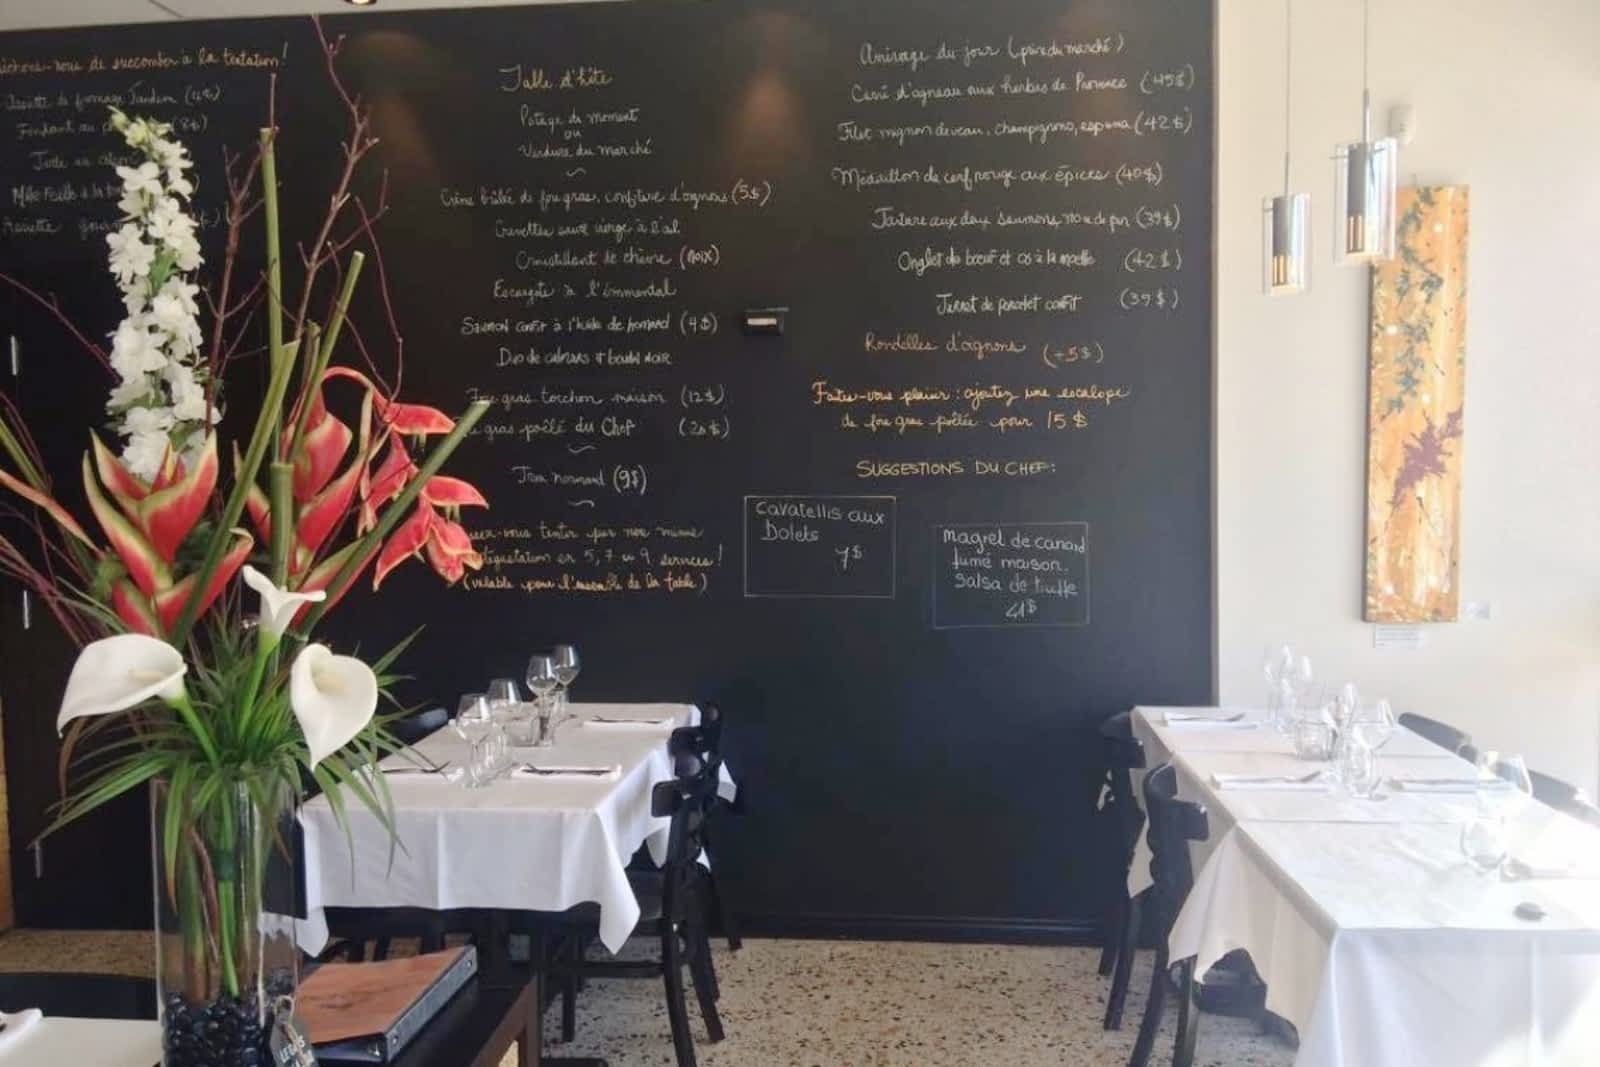 de succomber à la tentation!
de fromage Tandem
Fondant au (8$)
Table d'hôte
Potage du moment
ou
Verdure du marché
Crème brûlée de foie gras, confiture d'oignons (5$)
Crevettes sauce vierge à l'ail
Croustillant de chèvre (noix)
Escargots à l'emmental
Saumon confit à l'huile de homard (4$)
Duo de calmars et boudin noir
Foie gras torchon maison (12$)
gras poêlé du Chef (20$)
Trou normand (9$)
-vous tenter par nos menus
dégustation en 5, 7 ou 9 services!
(valable pour l'ensemble de la table)
Arrivage du jour (prix du marché)
Carré d'agneau aux herbes de Provence (45$)
Filet mignon de veau, champignons, espuma (42$)
Médaillon de cerf rouge aux épices (40$)
Tartare aux deux saumons, noix de pin (39$)
Onglet de bœuf et os à la moelle (42$)
Jarret de porcelet confit (39$)
Rondelles d'oignons (+5$)
Faites-vous plaisir: ajoutez une escalope
de foie gras poêlée pour 15$
SUGGESTIONS DU CHEF:
Cavatellis aux
Bolets
7$
magret de canard
fumé maison.
salsa de truffe
41$